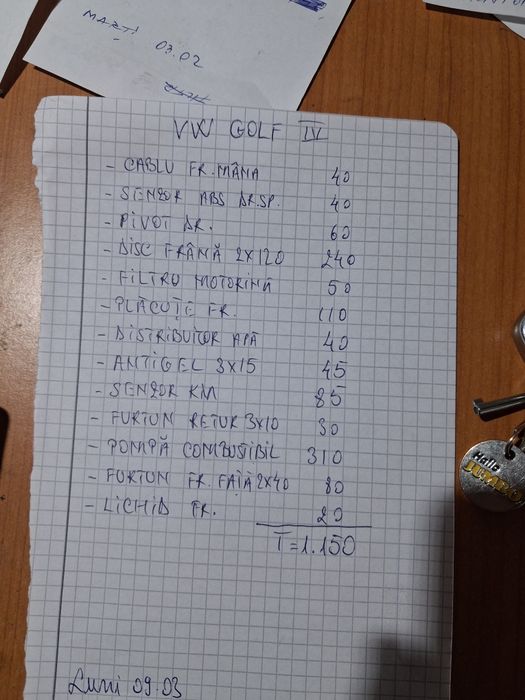 MARTI
03.02
VW GOLF IV
- CABLU FR. MÂNA 40
- SENZOR ABS DR.SP. 40
- PIVOT DR. 60
- DISC FRÂNĂ 2X120 240
- FILTRU MOTORINĂ 50
- PLĂCUȚE FR. 110
- DISTRIBUITOR APĂ 40
- ANTIGEL 3X15 45
- SENZOR KM 85
- FURTUN RETUR 3X10 30
- POMPĂ COMBUSTIBIL 310
- FURTUN FR. FAȚĂ 2X40 80
- LICHID FR. 20
T = 1.150
Luni 09.03
Hallo